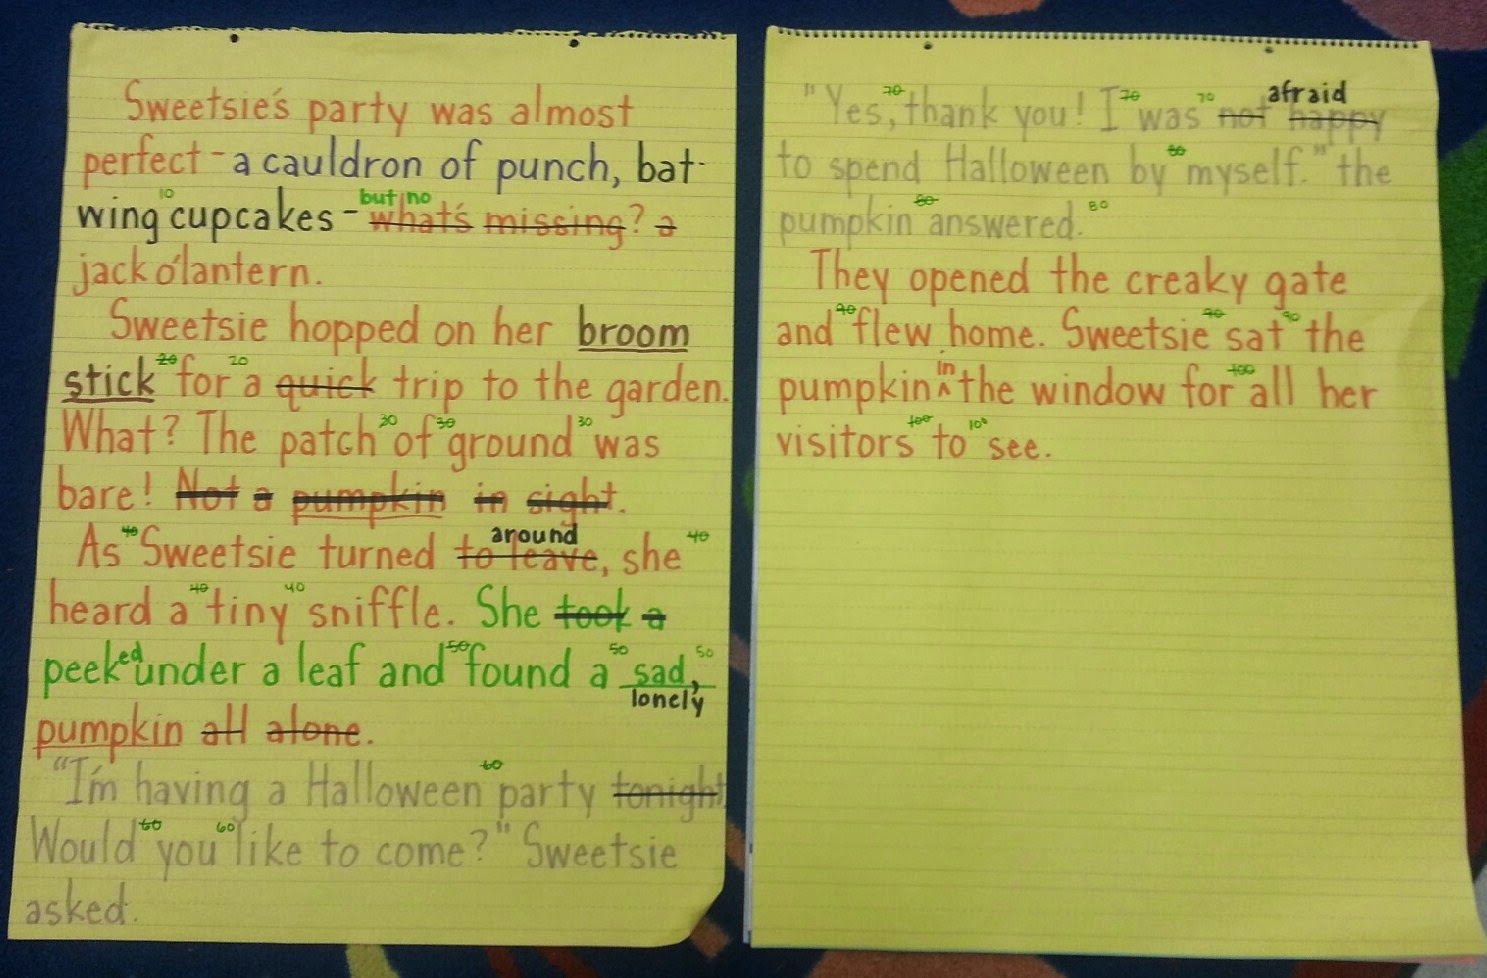 Sweetsie's party was almost
perfect - a cauldron of punch, bat-
10
but no
wing cupcakes - what's missing? a
jack o'lantern.
Sweetsie hopped on her broom
20 20
stick for a quick trip to the garden.
30 30 30
What? The patch of ground was
bare! Not a pumpkin in sight.
40 around 40
As Sweetsie turned to leave, she
40 40
heard a tiny sniffle. She took a
50 50 50
peeked under a leaf and found a sad,
lonely
pumpkin all alone.
60
"I'm having a Halloween party tonight
60 60
Would you like to come?" Sweetsie
asked.
70 70 70 afraid
"Yes, thank you! I was not happy
80
to spend Halloween by myself." the
80 80
pumpkin answered.
They opened the creaky gate
90 90 90
and flew home. Sweetsie sat the
in 100
pumpkin ^ the window for all her
100 100
visitors to see.